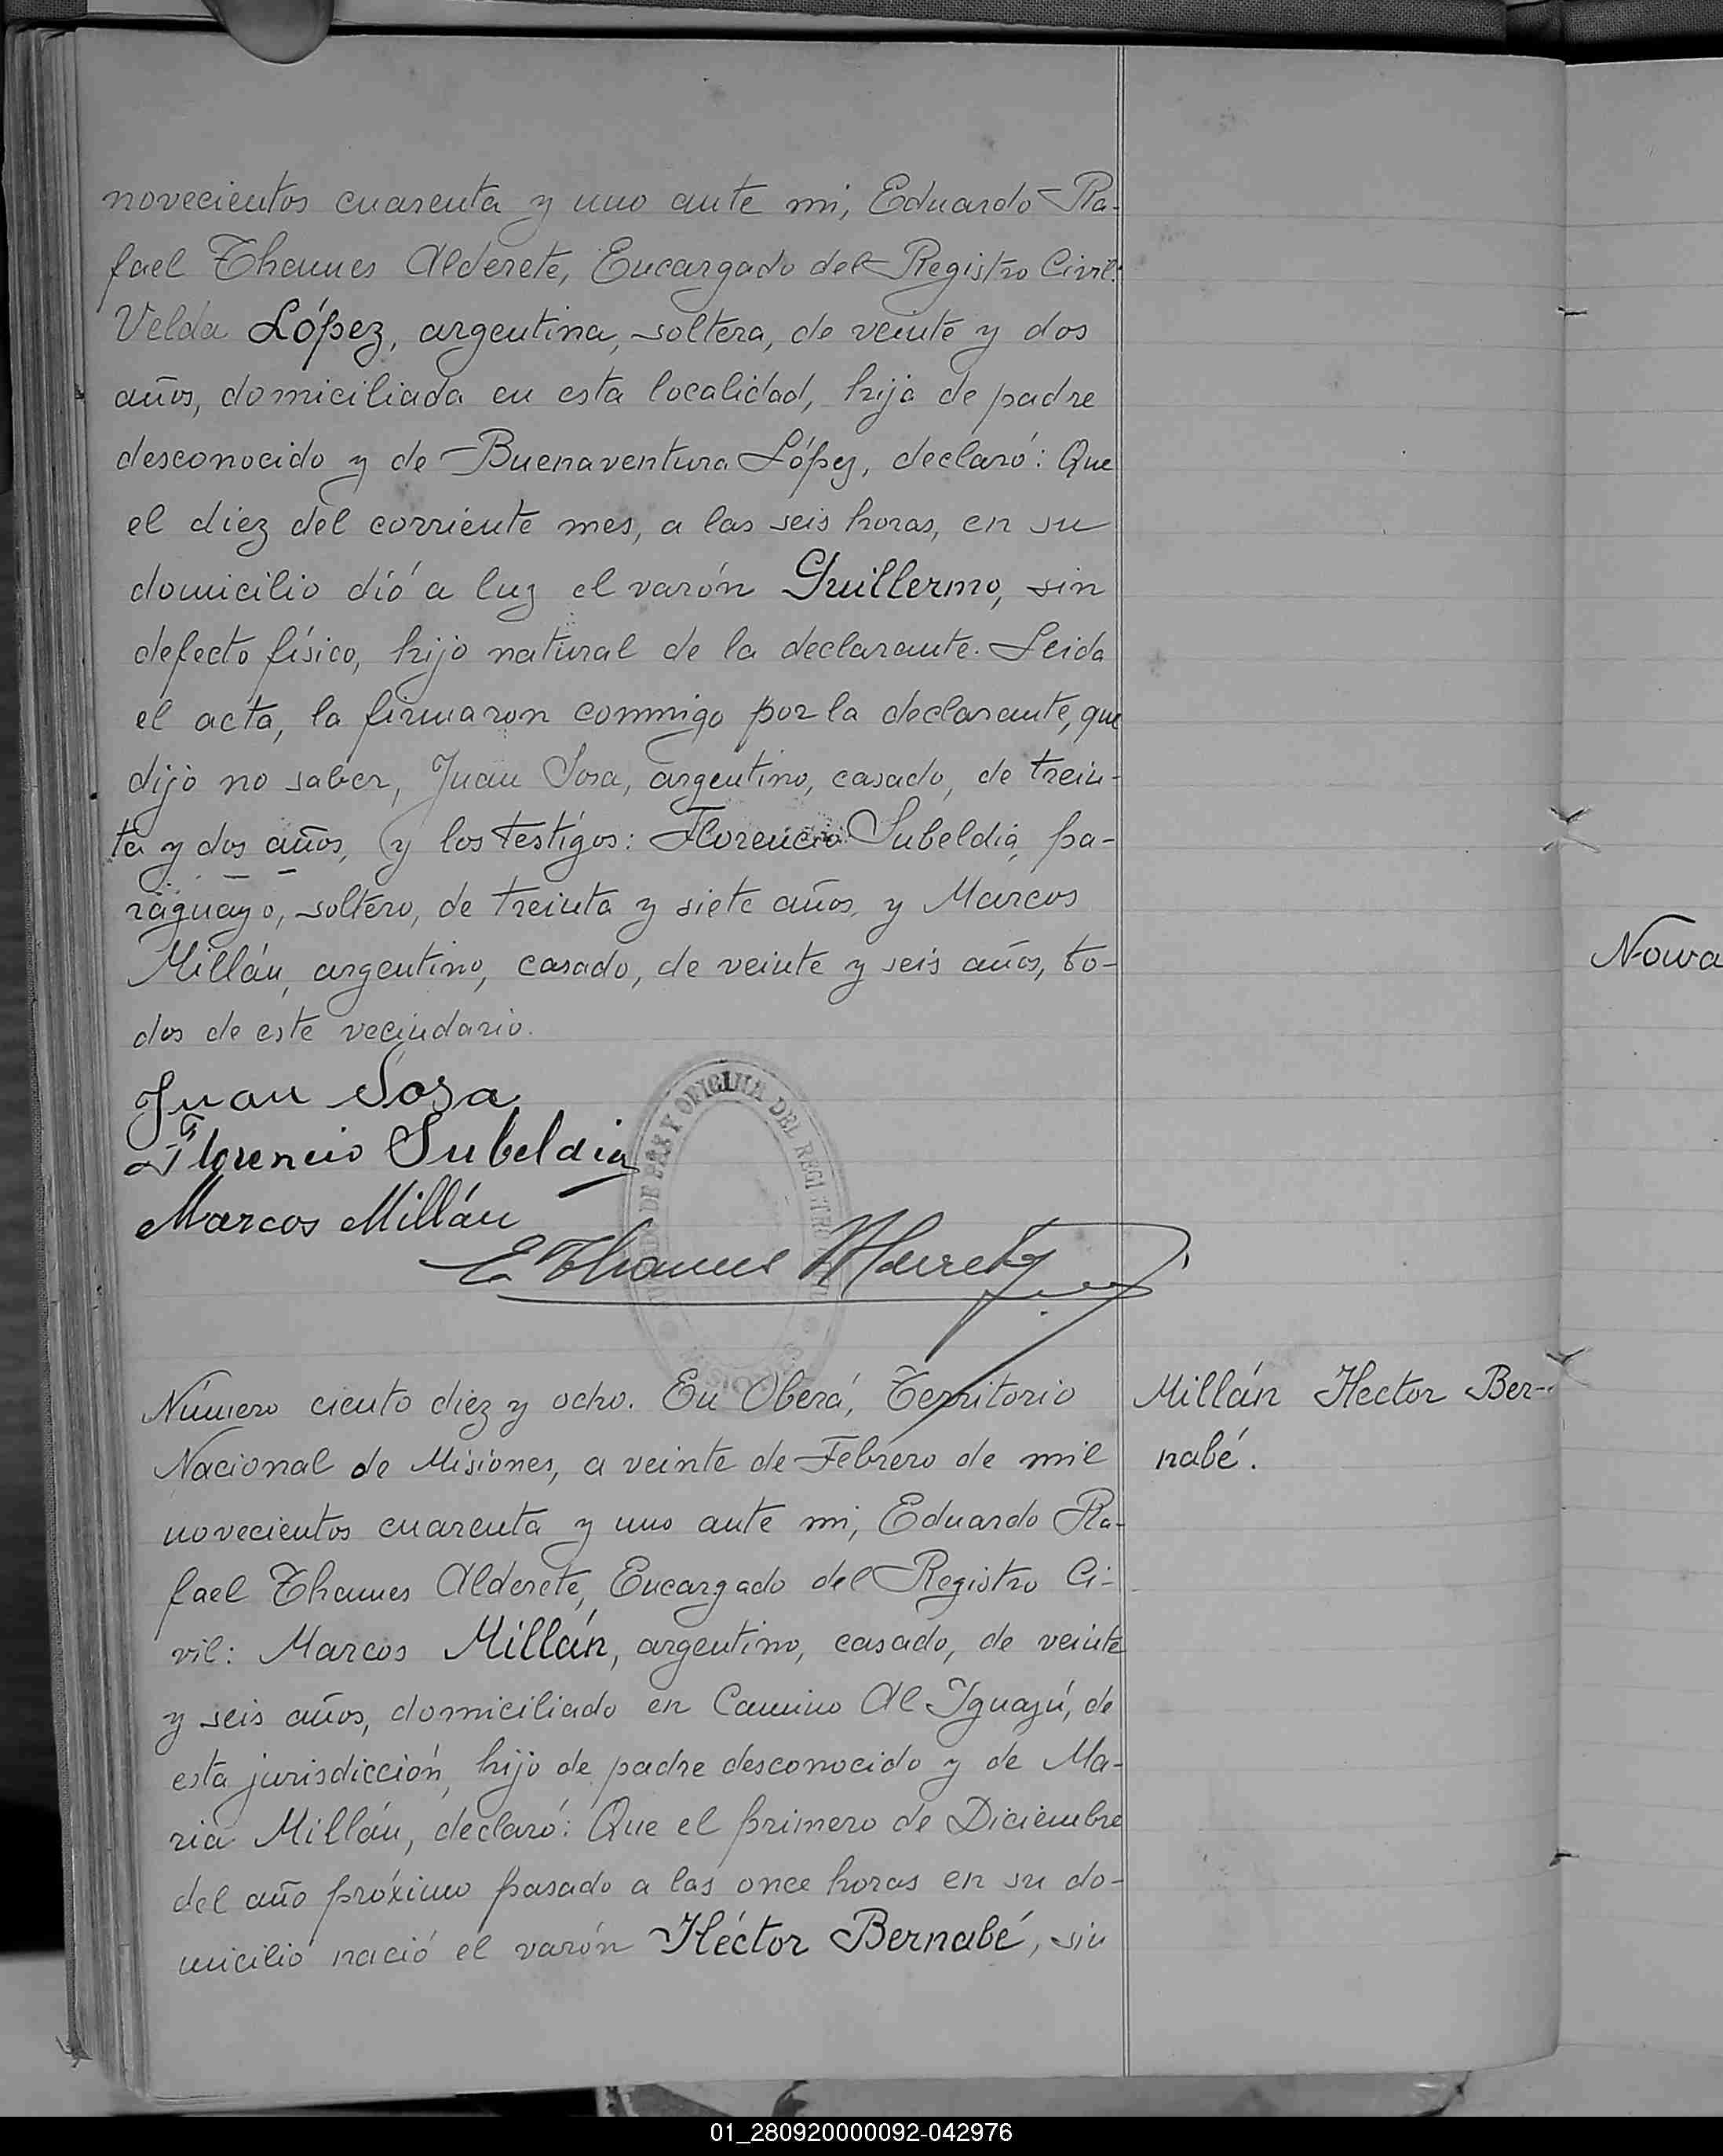 novecientos cuarenta y uno ante mi, Eduardo Ra-
fael Thames Alderete, Encargado del Registro Civil:
Velda López, argentina, soltera, de veinte y dos
años, domiciliada en esta localidad, hija de padre
desconocido y de Buenaventura López, declaró: Que
el diez del corriente mes, a las seis horas, en su
domicilio dió a luz el varón Guillermo, sin
defecto físico, hijo natural de la declarante. Leida
el acta, la firmaron conmigo por la declarante, que
dijo no saber, Juan Sosa, argentino, casado, de trein-
ta y dos años, y los testigos: Florencio Subeldia, pa-
raguayo, soltero, de treinta y siete años, y Marcos
Millán, argentino, casado, de veinte y seis años, to-
dos de este vecindario.
Juan Sosa
Florencio Subeldia
Marcos Millán
DE PAZ Y OFICINA DEL REGISTRO
E Thames Alderete
Número ciento diez y ocho. En Oberá, Territorio
Nacional de Misiones, a veinte de Febrero de mil
novecientos cuarenta y uno ante mi, Eduardo Ra-
fael Thames Alderete, Encargado del Registro Ci-
vil: Marcos Millán, argentino, casado, de veinte
y seis años, domiciliado en Camino Al Iguazú, de
esta jurisdicción, hijo de padre desconocido y de Ma-
ria Millán, declaró: Que el primero de Diciembre
del año próximo pasado a las once horas en su do-
micilio nació el varón Héctor Bernabé, sin
Millán Hector Ber-
nabé.
Nowa
01_280920000092-042976